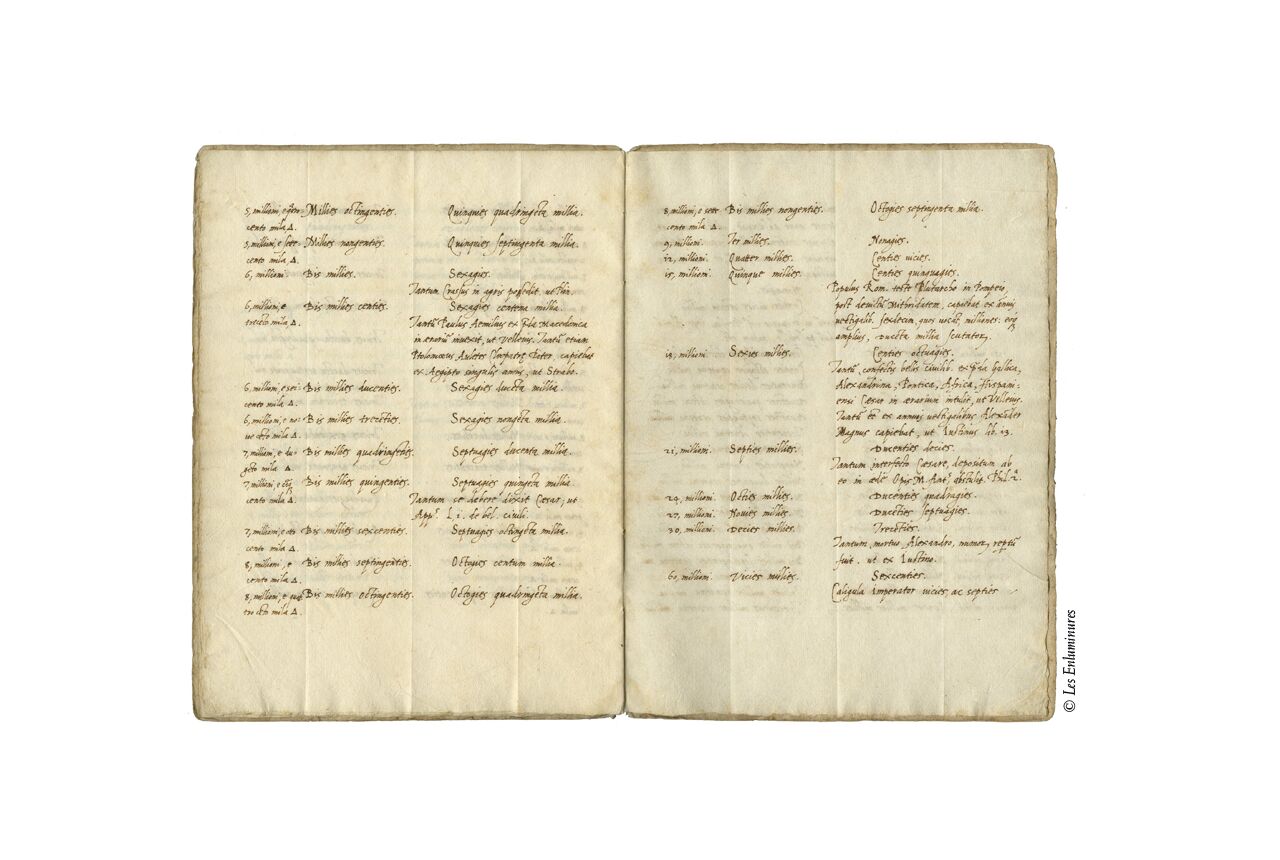 5, millioni, e quattro- Millies octingenties. Quinquies quadringeta millia.
cento mila Δ.
5, millioni, e sette- Millies nongenties. Quinquies septingenta millia.
cento mila Δ.
6, millioni. Bis millies. Sexagies.
Tantum Crassus in agris possedit, ut Plin.
6, millioni, e Bis millies centies. Sexagies centena millia.
trecēto mila Δ. Tantū Paulus Aemilius ex p̄da Macedonica
in ærariū invexit, ut Velleius. Tantū etiam
Ptolomæus Auletes Cleopatræ Pater, capiebat
ex Aegipto singulis annis, ut Strabo.
6, millioni, e sei- Bis millies ducenties. Sexagies ducēta millia.
cento mila Δ.
6, millioni, e no- Bis millies trecēties. Sexagies nongēta millia.
ue cēto mila Δ.
7, millioni, e du- Bis millies quadringēties. Septuagies ducenta millia.
gēto mila Δ.
7, millioni, e Bis millies quingenties. Septuagies quingēta millia.
cento mila Δ. Tantum se debere dixit Cæsar, ut
App. L i. de bel. civili.
7, millioni, e otto Bis millies sexcenties. Septuagies octingēta millia.
cento mila Δ.
8, millioni, e Bis millies septingenties. Octogies centum millia.
cento mila Δ.
8, millioni, e Bis millies octingenties. Octogies quadringēta millia.
tro cēto mila Δ.
8, millioni, e sette Bis millies nongenties. Octogies septingenta millia.
cento mila Δ.
9, millioni. Ter millies. Nonagies.
12, millioni. Quater millies. Centies vicies.
15, millioni. Quinque millies. Centies quinquagies.
Populus Rom. teste Plutarcho in Pompeio,
post devictū Mithridatem, capiebat ex annis
vectigalib. sexdecim, quos vocāt, milliones: ergo
amplius, ducēta millia scutatorz.
18, millioni. Sexies millies. Centies octuagies.
Tantū, confectis bellis civilib. ex p̄da Gallica,
Alexandrina, Pontica, Africa, Hispani-
ensi Cæsar in ærarium intulit, ut Velleius.
Tantū et ex annuis vectigalibus Alexāder
Magnus capiebat, ut Iustinus lib. 13.
21, millioni. Septies millies. Ducenties decies.
Tantum interfecto Cæsare, depositum ab
eo in æde Opis M. Ant. Phil. 2.
24, millioni. Octies millies. Ducenties quadragies.
27, millioni. Novies millies. Ducēties septuagies.
30, millioni. Decies millies. Trecēties.
Tantum, mortuo Alexandro, repertū
fuit. ut ex Iustino.
60, millioni. Vicies millies. Sexcenties.
Caligula Imperator vicies, ac septies
© Les Enluminures